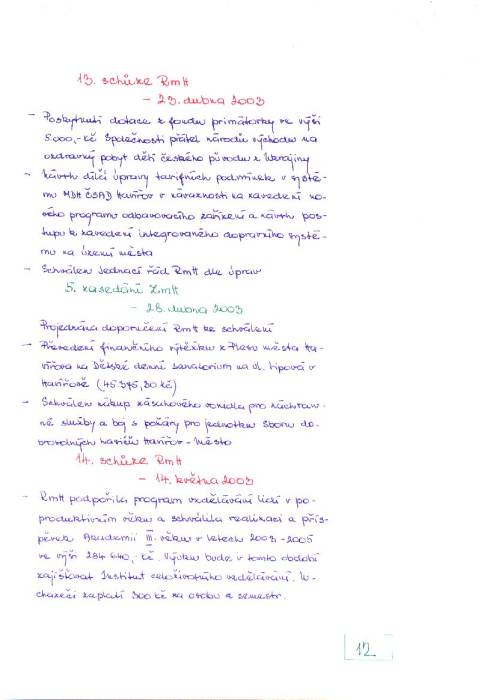 13. schůze RmH
- 23. dubna 2003
- Poskytnutí dotace z fondu primátorky ve výši
5.000,- Kč Společnosti přátel národů východu na
ozdravný pobyt dětí českého původu z Ukrajiny
- Návrh dílčí úpravy tarifních podmínek v systé-
mu MDH ČSAD Havířov v návaznosti na zavedení no-
vého programu odbavovacího zařízení a návrh pos-
tupu k zavedení integrovaného dopravního systé-
mu na území města
- Schválen Jednací řád RmH dle úprav
5. zasedání ZmH
- 28. dubna 2003
Projednána doporučení RmH ke schválení
- Převedení finančního výtěžku z Plesu města Ha-
vířova na Dětské denní sanatorium na ul. Lipová v
Havířově (45.375,30 Kč)
- Schválen nákup zásahového vozidla pro záchran-
né služby a boj s požáry pro jednotku Sboru do-
brovolných hasičů Havířov - Město
14. schůze RmH
- 14. května 2003
- RmH podpořila program vzdělávání lidí v po-
produktivním věku a schválila realizaci a přís-
pěvek Akademii III. věku v letech 2003 - 2005
ve výši 284 640,- Kč. Výuku bude v tomto období
zajišťovat Institut celoživotního vzdělávání. U-
chazeči zaplatí 300 Kč za osobu a semestr.
12